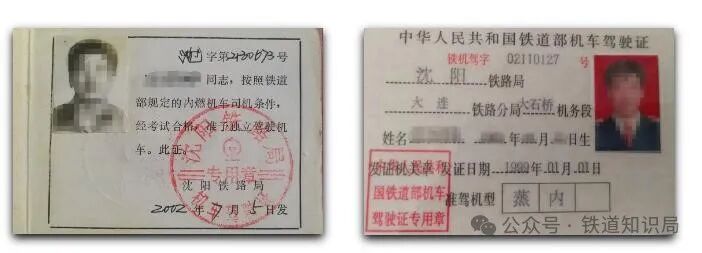 字第2130673号
同志，按照铁道
部规定的内燃机车司机条件，
经考试合格，准予独立驾驶机
车。此证。
沈阳铁路局
专用章
沈阳铁路局
2002年7月5日发
中华人民共和国铁道部机车驾驶证
铁机驾字 02110127 号
沈阳 铁路局
大连 铁路分局 大石桥 机务段
姓名 年 月 日生
发证机关章 发证日期 1999.01.01日
准驾机型 蒸 内
中华人民共和
国铁道部机车
驾驶证专用章
公众号·铁道知识局